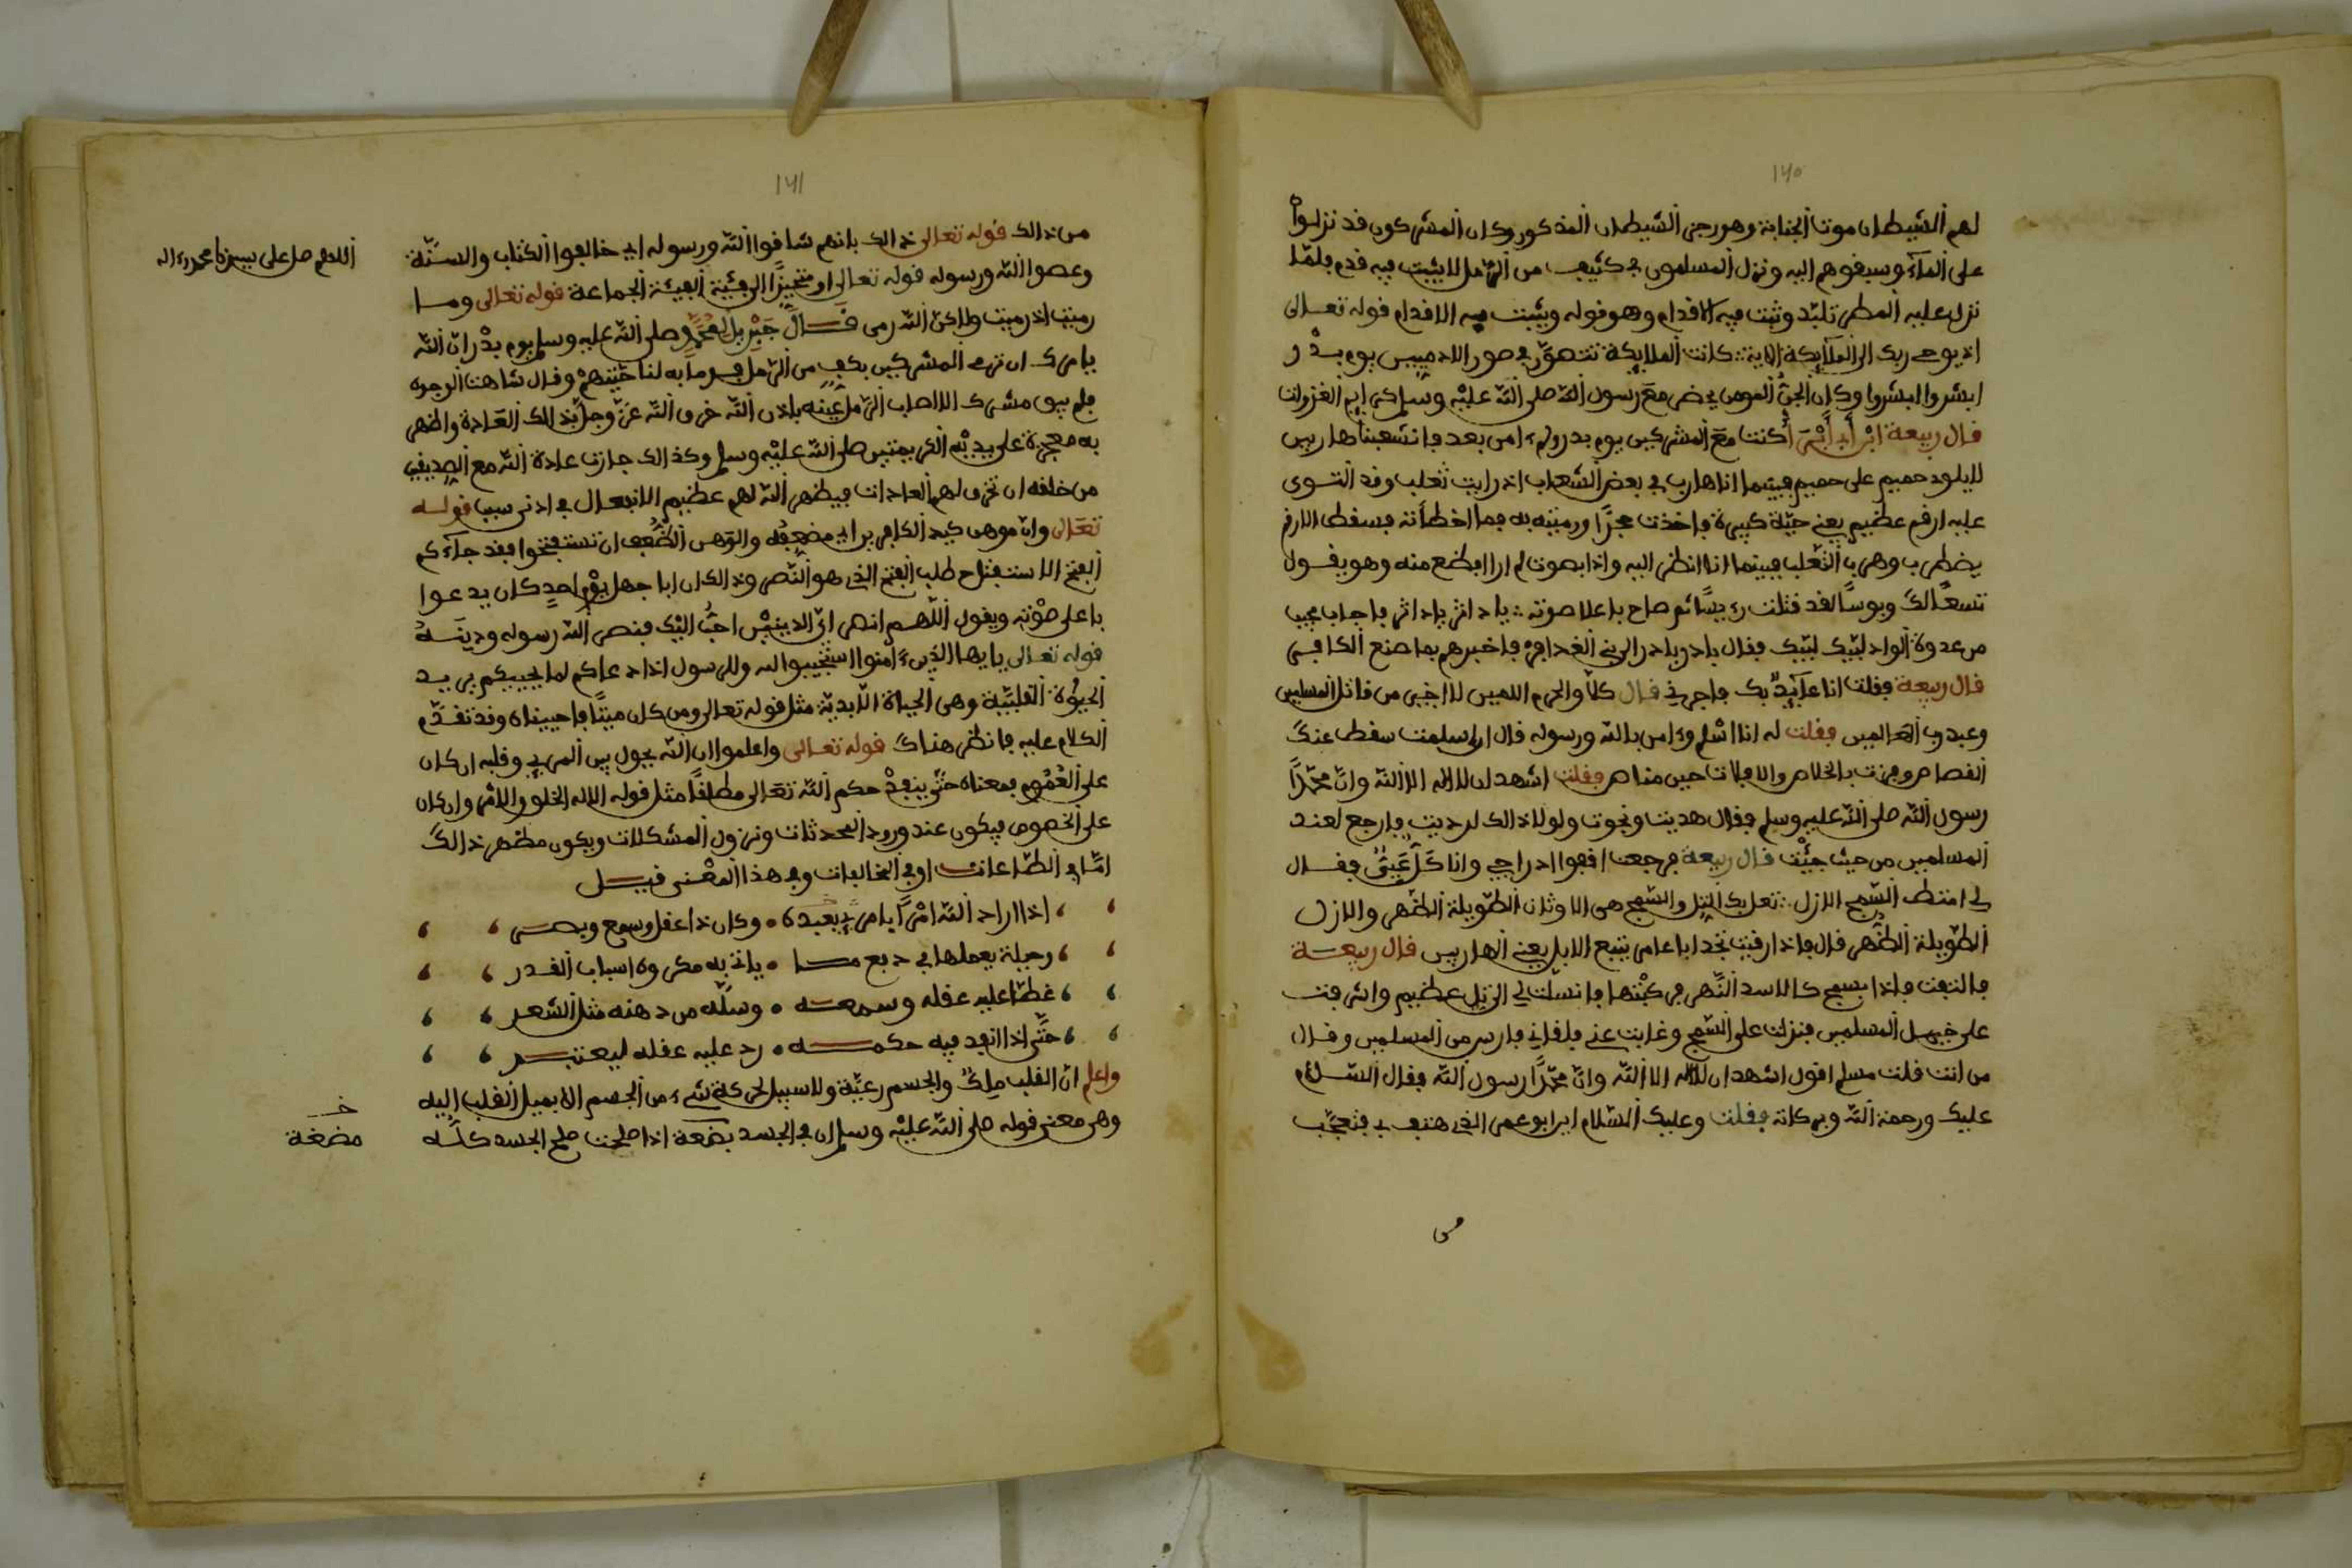 ١٧٥
لهم الشيطان موت الجنابة وهو رجز الشيطان المذكور وكان المشركون قد نزلوا
على المآء وسبقوهم اليه ونزل المسلمون في كثيب من الرمل لا يثبت فيه قدم فلمّا
نزل عليه المطر تلبّد وثبت فيه الاقدام وهو قوله ويثبت به الاقدام قوله تعالى
اذ يوحى ربك الى الملآئكة الاية كانت الملايكة تتصوّر في صور الادميين يوم بدر
ابشروا ابشروا وكان الجنّ المومن يحضر مع رسول الله صلى الله عليه وسلم كرايم الغزوات
قال ربيعة ابن أبي كنت مع المشركين يوم بدر ولم ءامن بعد فانشعبنا هاربين
لا يلود حميم على حميم فبينما انا هارب في بعض الشعاب اذ رايت ثعلب وقد التوى
عليه ارقم عظيم يعني حيّة كبيرة فاخذت حجرًا ورميته به فما اخطأته فسقط الارقم
يضطرب وهرب الثعلب فبينما انا انظر اليه واذا بصوت لم ار افظع منه وهو يقول
تسعًا لك وبوسًا لقد قتلت رييسًا ثم صاح باعلا صوته يا داثر يا داثر فاجاب مجيب
من عدوة الواد لبّيك لبّيك فقال بادر بادر الى بني الغدافر فاخبرهم بما صنع الكافر
قال ربيعة فقلت انا عآئذ بك فاجرني قال كلّا والحرم الامين لا اجير من قاتل المسلمين
وعبد رب العالمين فقلت له انا اسلم وءامن بالله ورسوله قال ان اسلمت سقط عنك
القصاص وفزت بالخلاص والا فلات حين مناص فقلت اشهد ان لا اله الا الله وانّ محمّدًا
رسول الله صلى الله عليه وسلم فقال هديت ونجوت ولولا ذالك لرديت فارجع لعند
المسلمين من حيث جيت قال ربيعة فرجعت اقفوا ادراجي وانا فقال
لي امتط السمج الازل تعل بك التل والسمج هى الاوثان الطويلة الظهر والازل
الطويلة الظهر قال فاذا رقيت تجد ابا عامر يتبع الابل يعني الهاربين قال ربيعة
فالتفت فاذا بسمج كالاسد النهر فركبتها فانسلت لي الى تل عظيم واشرفت
على خيل المسلمين فنزلت على السمج وغابت عني فلقاني فارس من المسلمين وقال
من انت قلت مسلم اقول اشهد ان لا اله الا الله وانّ محمّدًا رسول الله فقال السّلام
عليك ورحمة الله وبركاته فقلت وعليك السلام اين ابو عمر الذي هتف بي فتعجّب
من
١٧١
من ذالك قوله تعالى ذالك بانهم شاقوا الله ورسوله اي خالفوا الكتاب والسنّة
وعصوا الله ورسوله قوله تعالى او متحيزًا الى فئية الفيئة الجماعة قوله تعالى وما
رميت اذ رميت ولاكن الله رمى قال جبريل لمحمّد صلى الله عليه وسلم يوم بدر ان الله
يامرك ان ترم المشركين بكف من الرمل فرما به لناحيتهم وقال شاهت الوجوه
فلم يبق مشرك الا اصاب الرمل عينه باذن الله خرق الله عزّ وجل بذالك العادة واظهر
به معجزة على يديه الكريمتين صلى الله عليه وسلم وكذالك جازت عادة الله مع الصديقين
من خلقه ان تخرق لهم العادات فيظهر الله لهم عظيم الافعال في ادنى سبب قوله
تعالى وان موهن كيد الكافرين اي مضعفه والوهن الضعف ان تستفتحوا فقد جآءكم
الفتح الاستفتاح طلب الفتح الذي هو النصر وذالك ان ابا جهل يوم احد كان يدعوا
باعلى صوته ويقول اللهم انصر اي الدينين احبّ اليك فنصر الله رسوله ودينه
قوله تعالى يايها الذين ءامنوا استجيبوا لله وللرسول اذا دعاكم لما يحييكم يريد
الحيوة القلبيّة وهى الحياة الابديّة مثل قوله تعالى ومن كان ميتًا فاحييناه وقد تقدّم
الكلام عليه فانظر هناك قوله تعالى واعلموا ان الله يحول بين المرء وقلبه ان كان
على العموم فمعناه حتّى ينفذ حكم الله تعالى مطلقًا مثل قوله الا له الخلق والامر وان كان
على الخصوص فيكون عند ورود المحدثات ونزول المشكلات ويكون مظهر ذالك
امّا في الطّاعات او في المخالفات وفي هذا المعنى قيل
اذا اراد الله امرًا يامر في بعبده وكان ذا عقل وسمع وبصر
وحيلة يعملها في دفع ما ياتي به مكروه اسباب القدر
غطّا عليه عقله وسمعه وسلّه من دهنه مثل الشعر
حتّى اذا انفذ فيه حكمه رد عليه عقله ليعتبر
واعلم ان القلب ملك والجسم رعيّة ولا سبيل لحركة شيء من الجسم الا بميل القلب اليه
وهى معنى قوله صلى الله عليه وسلم ان في الجسد بضعة اذا صلحت صلح الجسد كله
اللهم صل على سيدنا محمد وءاله
خ
مضغة